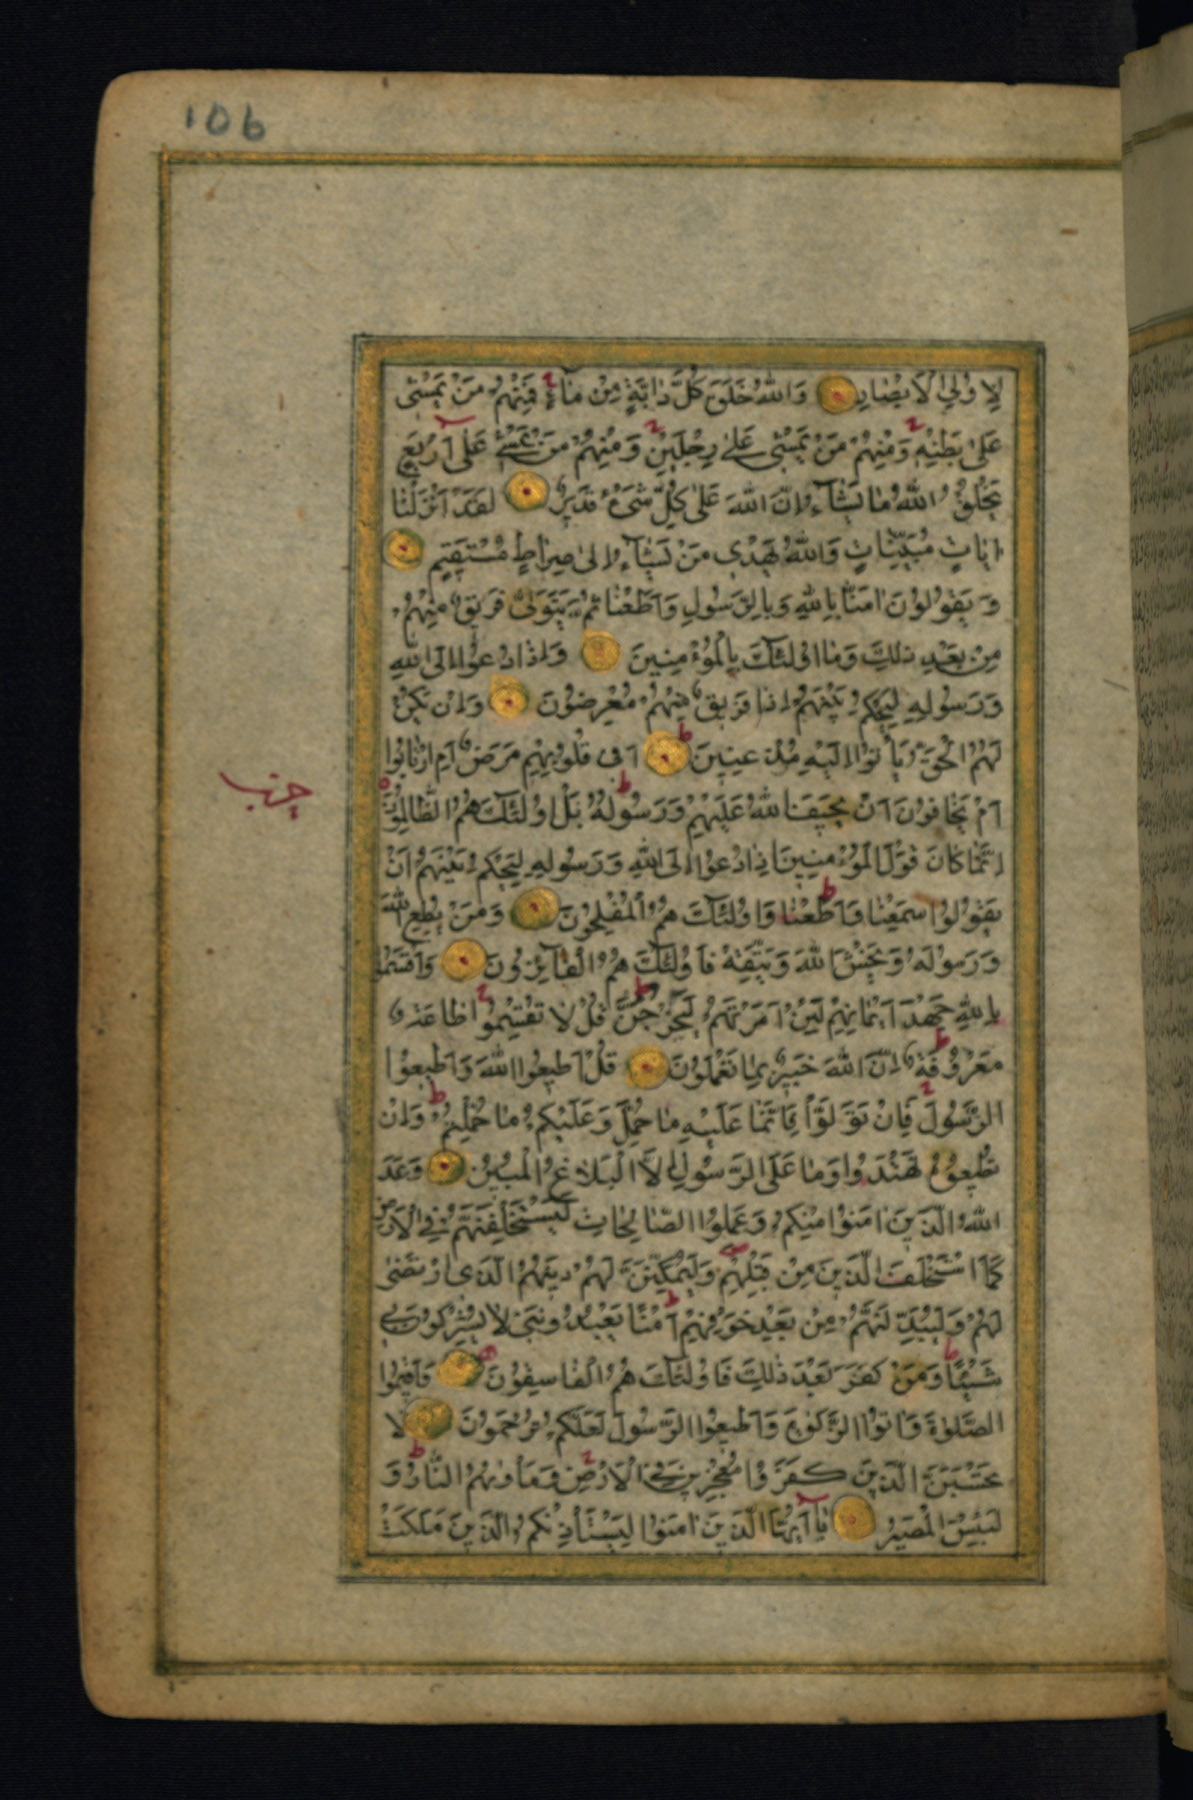 106
لِاُولِي الْاَبْصَارِ وَاللّٰهُ خَلَقَ كُلَّ دَابَّةٍ مِنْ مَاءٍ فَمِنْهُمْ مَنْ يَمْشٖى
عَلٰى بَطْنِهٖ وَمِنْهُمْ مَنْ يَمْشٖى عَلٰى رِجْلَيْنِ وَمِنْهُمْ مَنْ يَمْشٖى عَلٰى اَرْبَعٍ
يَخْلُقُ اللّٰهُ مَا يَشَاءُ اِنَّ اللّٰهَ عَلٰى كُلِّ شَیْءٍ قَدٖيرٌ لَقَدْ اَنْزَلْنَا
اٰيَاتٍ مُبَيِّنَاتٍ وَاللّٰهُ يَهْدٖى مَنْ يَشَاءُ اِلٰى صِرَاطٍ مُسْتَقٖيمٍ
وَيَقُولُونَ اٰمَنَّا بِاللّٰهِ وَبِالرَّسُولِ وَاَطَعْنَا ثُمَّ يَتَوَلّٰى فَرٖيقٌ مِنْهُمْ
مِنْ بَعْدِ ذٰلِكَ وَمَا اُولٰئِكَ بِالْمُؤْمِنٖينَ وَاِذَا دُعُوا اِلَى اللّٰهِ
وَرَسُولِهٖ لِيَحْكُمَ بَيْنَهُمْ اِذَا فَرٖيقٌ مِنْهُمْ مُعْرِضُونَ وَاِنْ يَكُنْ
لَهُمُ الْحَقُّ يَاْتُوا اِلَيْهِ مُذْعِنٖينَ اَفٖى قُلُوبِهِمْ مَرَضٌ اَمِ ارْتَابُوا
اَمْ يَخَافُونَ اَنْ يَحٖيفَ اللّٰهُ عَلَيْهِمْ وَرَسُولُهُ بَلْ اُولٰئِكَ هُمُ الظَّالِمُونَ
حزب
اِنَّمَا كَانَ قَوْلَ الْمُؤْمِنٖينَ اِذَا دُعُوا اِلَى اللّٰهِ وَرَسُولِهٖ لِيَحْكُمَ بَيْنَهُمْ اَنْ
يَقُولُوا سَمِعْنَا وَاَطَعْنَا وَاُولٰئِكَ هُمُ الْمُفْلِحُونَ وَمَنْ يُطِعِ اللّٰهَ
وَرَسُولَهُ وَيَخْشَ اللّٰهَ وَيَتَّقْهِ فَاُولٰئِكَ هُمُ الْفَائِزُونَ وَاَقْسَمُوا
بِاللّٰهِ جَهْدَ اَيْمَانِهِمْ لَئِنْ اَمَرْتَهُمْ لَيَخْرُجُنَّ قُلْ لَا تُقْسِمُوا طَاعَةٌ
مَعْرُوفَةٌ اِنَّ اللّٰهَ خَبٖيرٌ بِمَا تَعْمَلُونَ قُلْ اَطٖيعُوا اللّٰهَ وَاَطٖيعُوا
الرَّسُولَ فَاِنْ تَوَلَّوْا فَاِنَّمَا عَلَيْهِ مَا حُمِّلَ وَعَلَيْكُمْ مَا حُمِّلْتُمْ وَاِنْ
تُطٖيعُوهُ تَهْتَدُوا وَمَا عَلَى الرَّسُولِ اِلَّا الْبَلَاغُ الْمُبٖينُ وَعَدَ
اللّٰهُ الَّذٖينَ اٰمَنُوا مِنْكُمْ وَعَمِلُوا الصَّالِحَاتِ لَيَسْتَخْلِفَنَّهُمْ فِى الْاَرْضِ
كَمَا اسْتَخْلَفَ الَّذٖينَ مِنْ قَبْلِهِمْ وَلَيُمَكِّنَنَّ لَهُمْ دٖينَهُمُ الَّذِى ارْتَضٰى
لَهُمْ وَلَيُبَدِّلَنَّهُمْ مِنْ بَعْدِ خَوْفِهِمْ اَمْنًا يَعْبُدُونَنٖى لَا يُشْرِكُونَ بٖى
شَيْئًا وَمَنْ كَفَرَ بَعْدَ ذٰلِكَ فَاُولٰئِكَ هُمُ الْفَاسِقُونَ وَاَقٖيمُوا
الصَّلٰوةَ وَاٰتُوا الزَّكٰوةَ وَاَطٖيعُوا الرَّسُولَ لَعَلَّكُمْ تُرْحَمُونَ لَا
تَحْسَبَنَّ الَّذٖينَ كَفَرُوا مُعْجِزٖينَ فِى الْاَرْضِ وَمَاْوٰيهُمُ النَّارُ وَ
لَبِئْسَ الْمَصٖيرُ يَا اَيُّهَا الَّذٖينَ اٰمَنُوا لِيَسْتَاْذِنْكُمُ الَّذٖينَ مَلَكَتْ